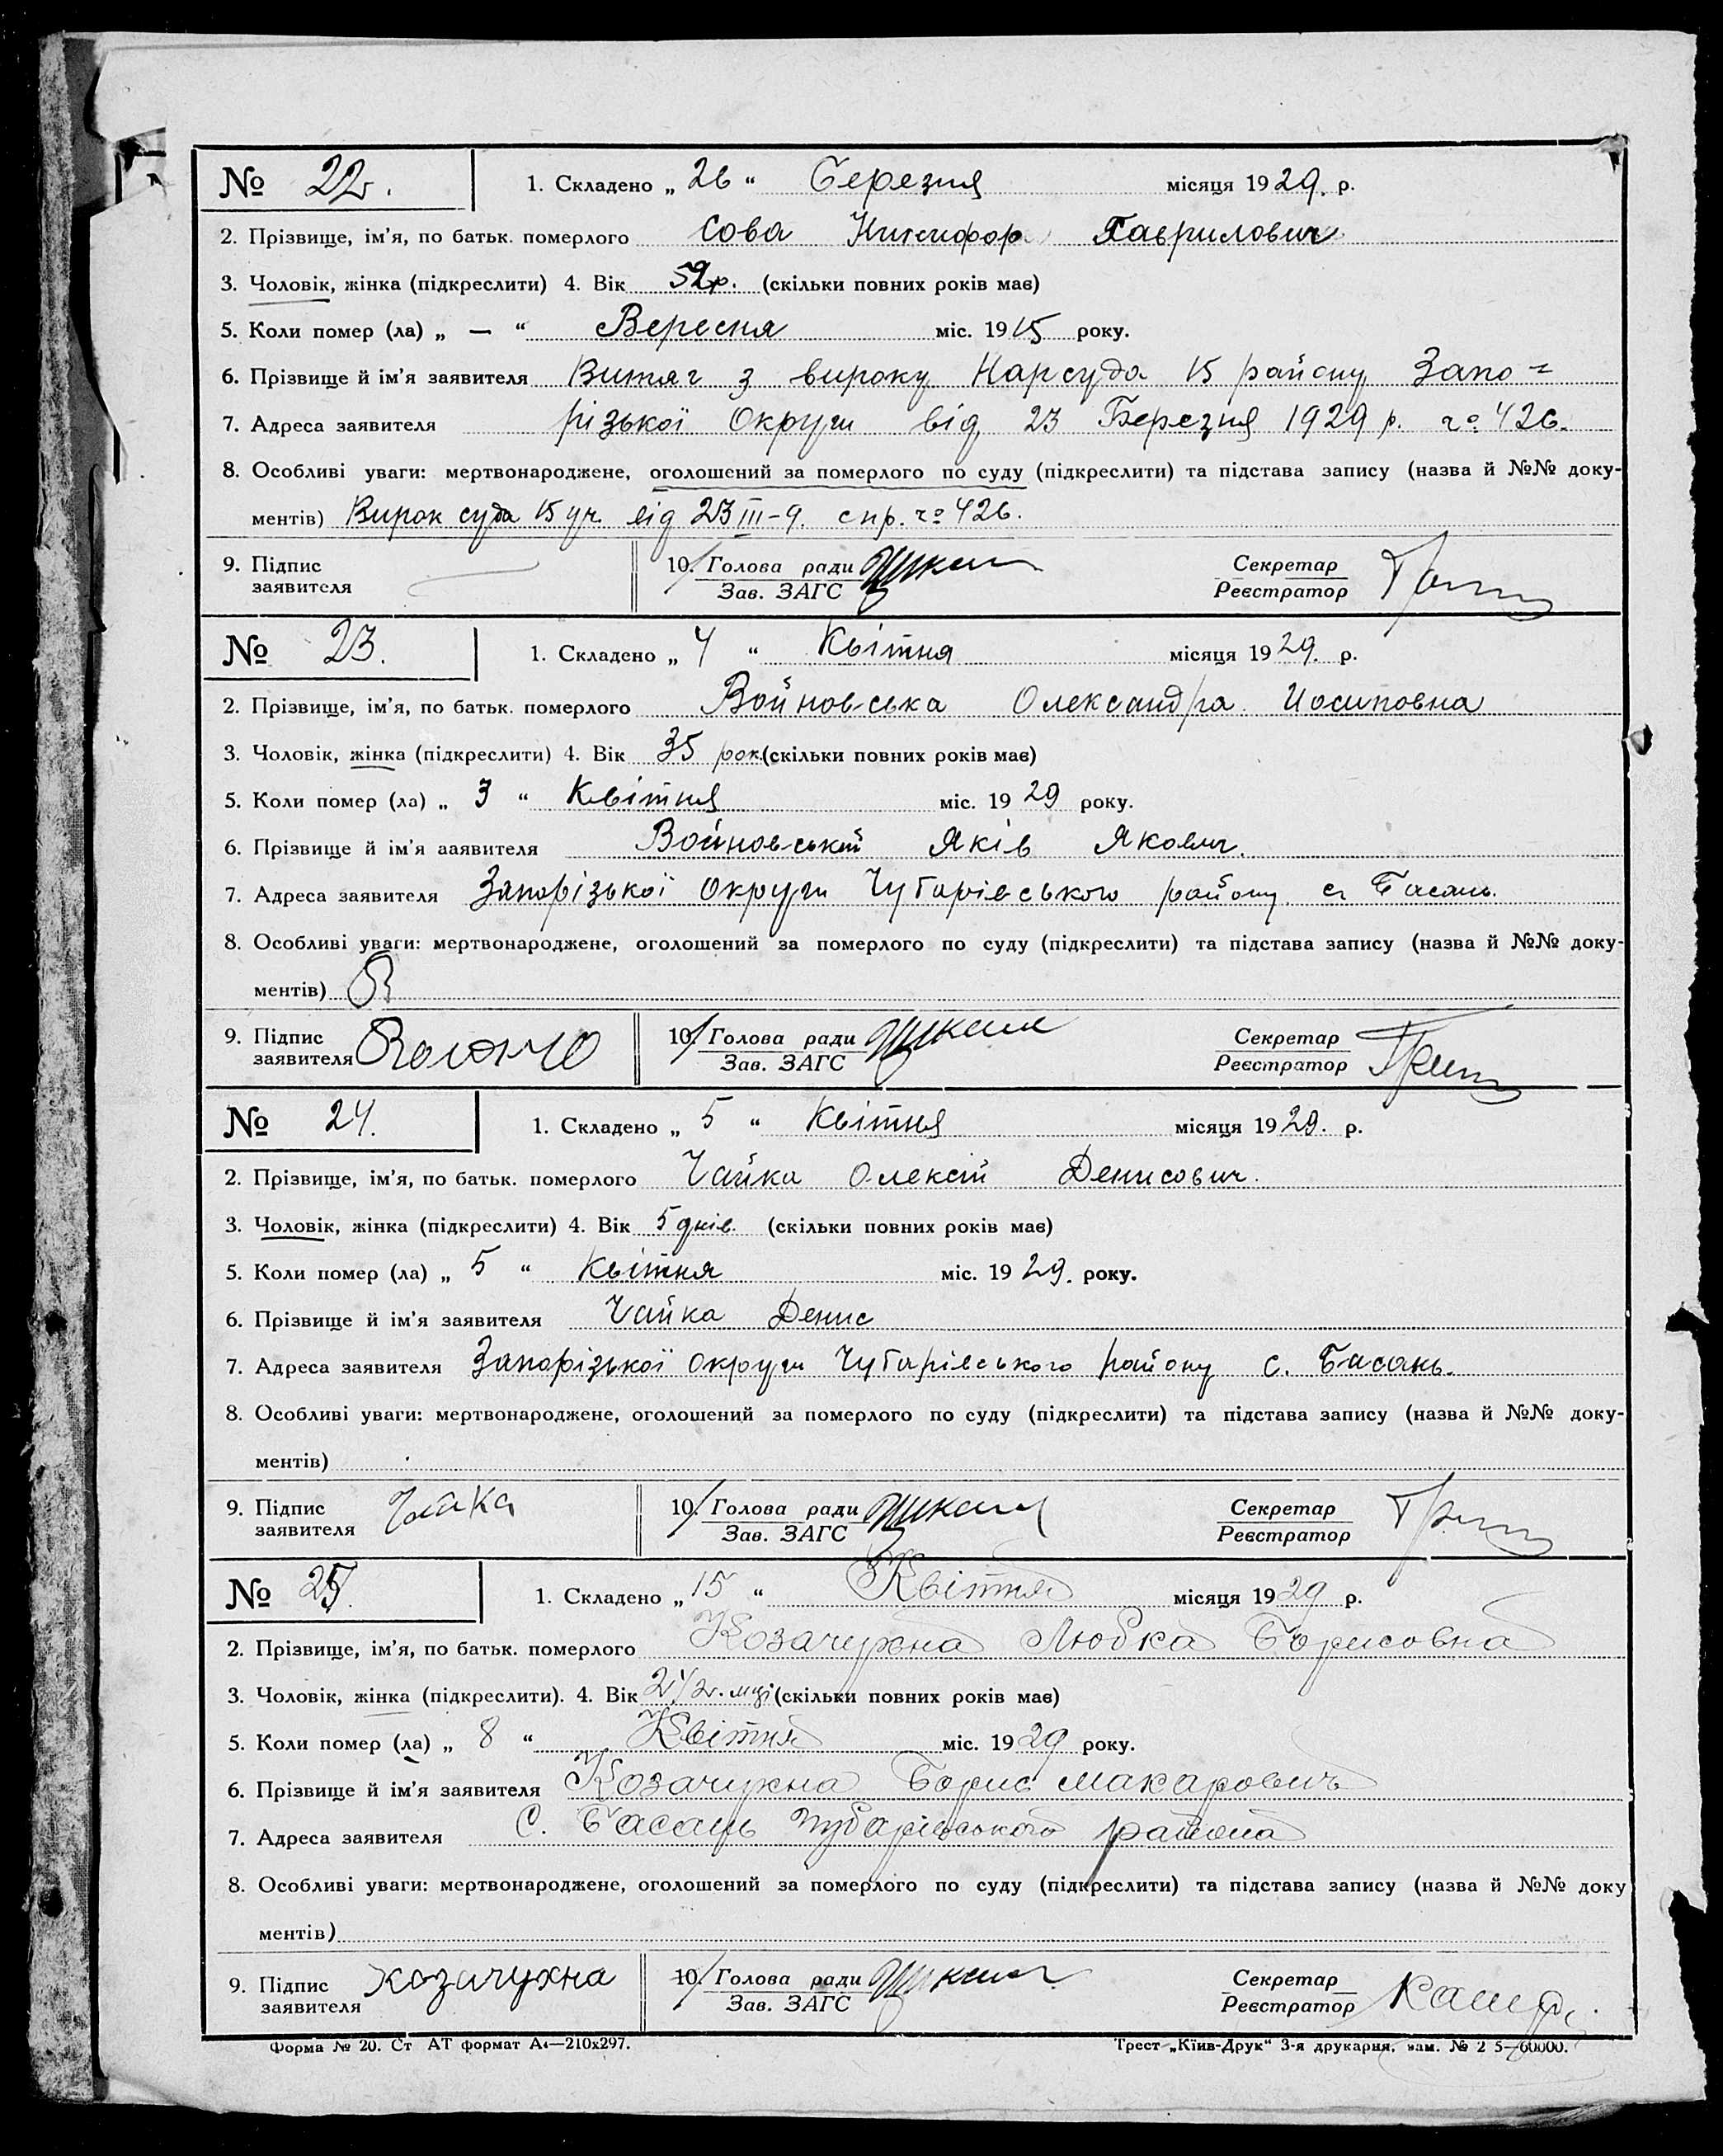 № 22. 1. Складено „ 26 “ Березня місяця 1929. р.
2. Прізвище, ім'я, по батьк. померлого Сова Никифор Гаврилович
3. Чоловік, жінка (підкреслити) 4. Вік 52р. (скільки повних років має)
5. Коли помер (ла) „ — “ Вересня міс. 1915 року.
6. Прізвище й ім'я заявителя Витяг з вироку Нарсуда 15 району Запо=
7. Адреса заявителя різької Округи від 23 Березня 1929 р. ч° 426.
8. Особливі уваги: мертвонароджене, оголошений за померлого по суду (підкреслити) та підстава запису (назва й №№ доку-
ментів) Вирок суда 15 уч. від 23 III-9. спр. ч° 426.
9. Підпис 10. Голова ради Секретар
заявителя Зав. ЗАГС Реєстратор
№ 23. 1. Складено „ 4 “ Квітня місяця 1929. р.
2. Прізвище, ім'я, по батьк. померлого Войновська Олександра Иосиповна
3. Чоловік, жінка (підкреслити) 4. Вік 35 рок. (скільки повних років має)
5. Коли помер (ла) „ 3 “ Квітня міс. 1929 року.
6. Прізвище й ім'я заявителя Войновський Яків Якович.
7. Адреса заявителя Запорізької Округи Чубарівського району с. Басань.
8. Особливі уваги: мертвонароджене, оголошений за померлого по суду (підкреслити) та підстава запису (назва й №№ доку-
ментів)
9. Підпис 10. Голова ради Секретар
заявителя Зав. ЗАГС Реєстратор
№ 24. 1. Складено „ 5 “ Квітня місяця 1929. р.
2. Прізвище, ім'я, по батьк. померлого Чайка Олексій Денисович.
3. Чоловік, жінка (підкреслити) 4. Вік 5 днів. (скільки повних років має)
5. Коли помер (ла) „ 5 “ Квітня міс. 1929. року.
6. Прізвище й ім'я заявителя Чайка Денис
7. Адреса заявителя Запорізької Округи Чубарівського району с. Басань.
8. Особливі уваги: мертвонароджене, оголошений за померлого по суду (підкреслити) та підстава запису (назва й №№ доку-
ментів)
9. Підпис Чайка 10. Голова ради Секретар
заявителя Зав. ЗАГС Реєстратор
№ 25. 1. Складено „ 15 “ Квітня місяця 1929 р.
2. Прізвище, ім'я, по батьк. померлого Козачухна Любка Борисовна
3. Чоловік, жінка (підкреслити). 4. Вік (скільки повних років має)
5. Коли помер (ла) „ 8 “ Квітня міс. 1929 року.
6. Прізвище й ім'я заявителя Козачухна Борис Макаровичъ
7. Адреса заявителя С. Басань Чубарівського района
8. Особливі уваги: мертвонароджене, оголошений за померлого по суду (підкреслити) та підстава запису (назва й №№ доку
ментів)
9. Підпис козачухна 10. Голова ради Секретар
заявителя Зав. ЗАГС Реєстратор
Форма № 20. Ст АТ формат А4—210х297. Трест „Київ-Друк“ 3-я друкарня, зам. № 2 5—60000.